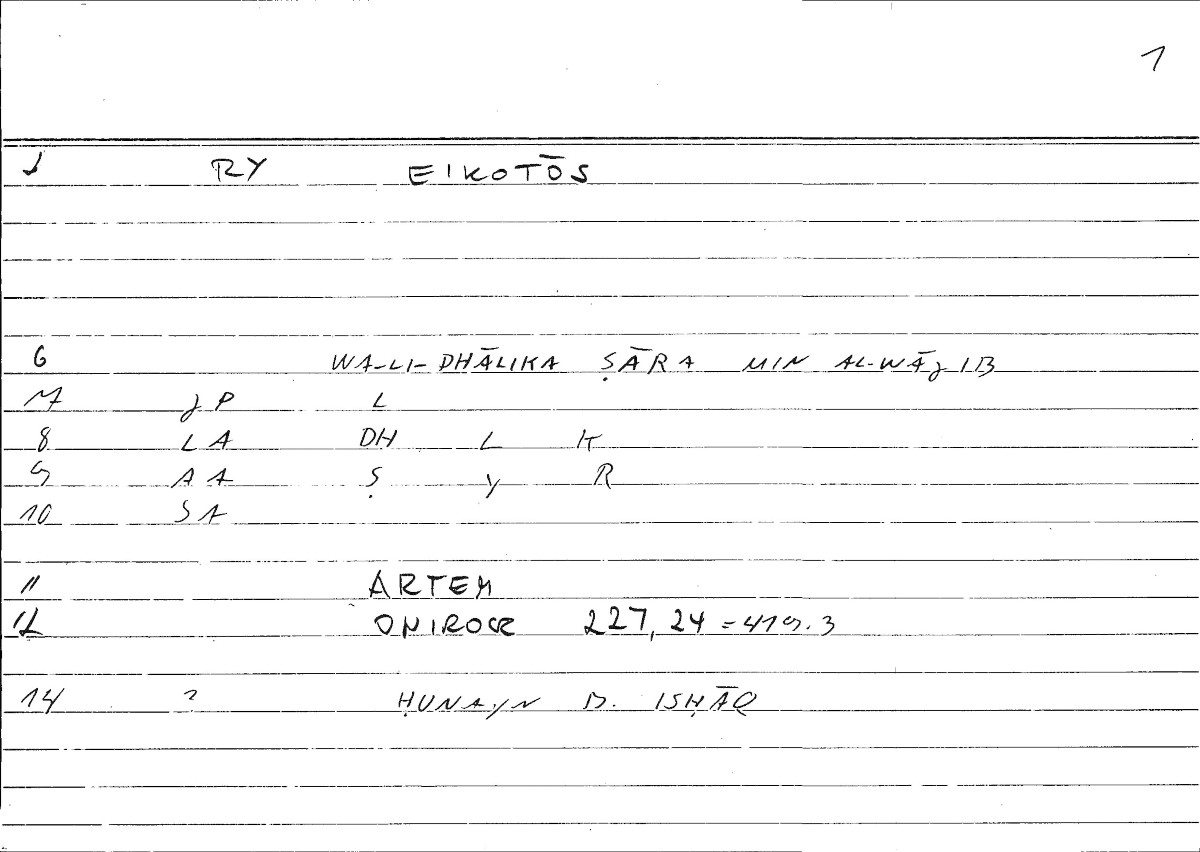 1
1 RY EIKOTŌS
6 WA-LI-DHĀLIKA ṢĀRA MIN AL-WĀJIB
7 JP L
8 LA DH L K
9 AA Ṣ Y R
10 SA
11 ARTEM
12 ONIROCR 227, 24 = 419.3
14 ? ḤUNAYN B. ISḤĀQ